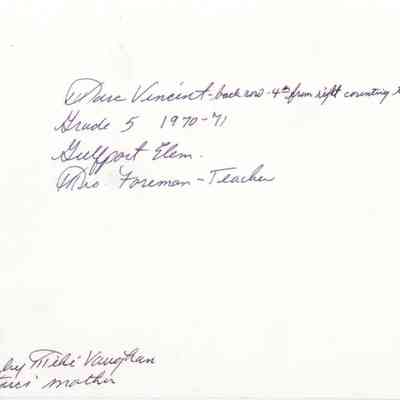 Marc Vincent - back row - 4th from right counting
Grade 5 1970-71
Gulfport Elem.
Mrs. Foreman - Teacher
by Miki Vaughan
mother